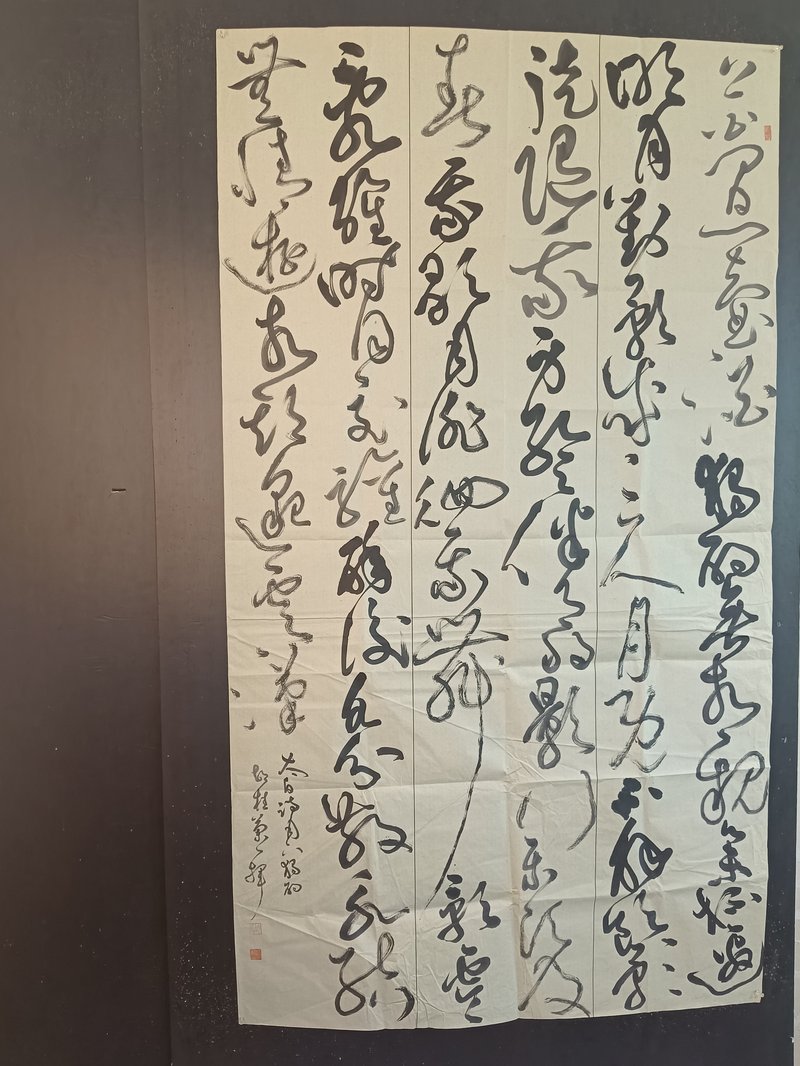 花間一壺酒獨酌無相親舉杯邀
明月對影成三人月既不解飲影
徒隨我身暫伴月將影行樂須及
春我歌月徘徊我舞影零
亂醒時同交歡醉後各分散永結
無情遊相期邈雲漢
太白詩月下獨酌